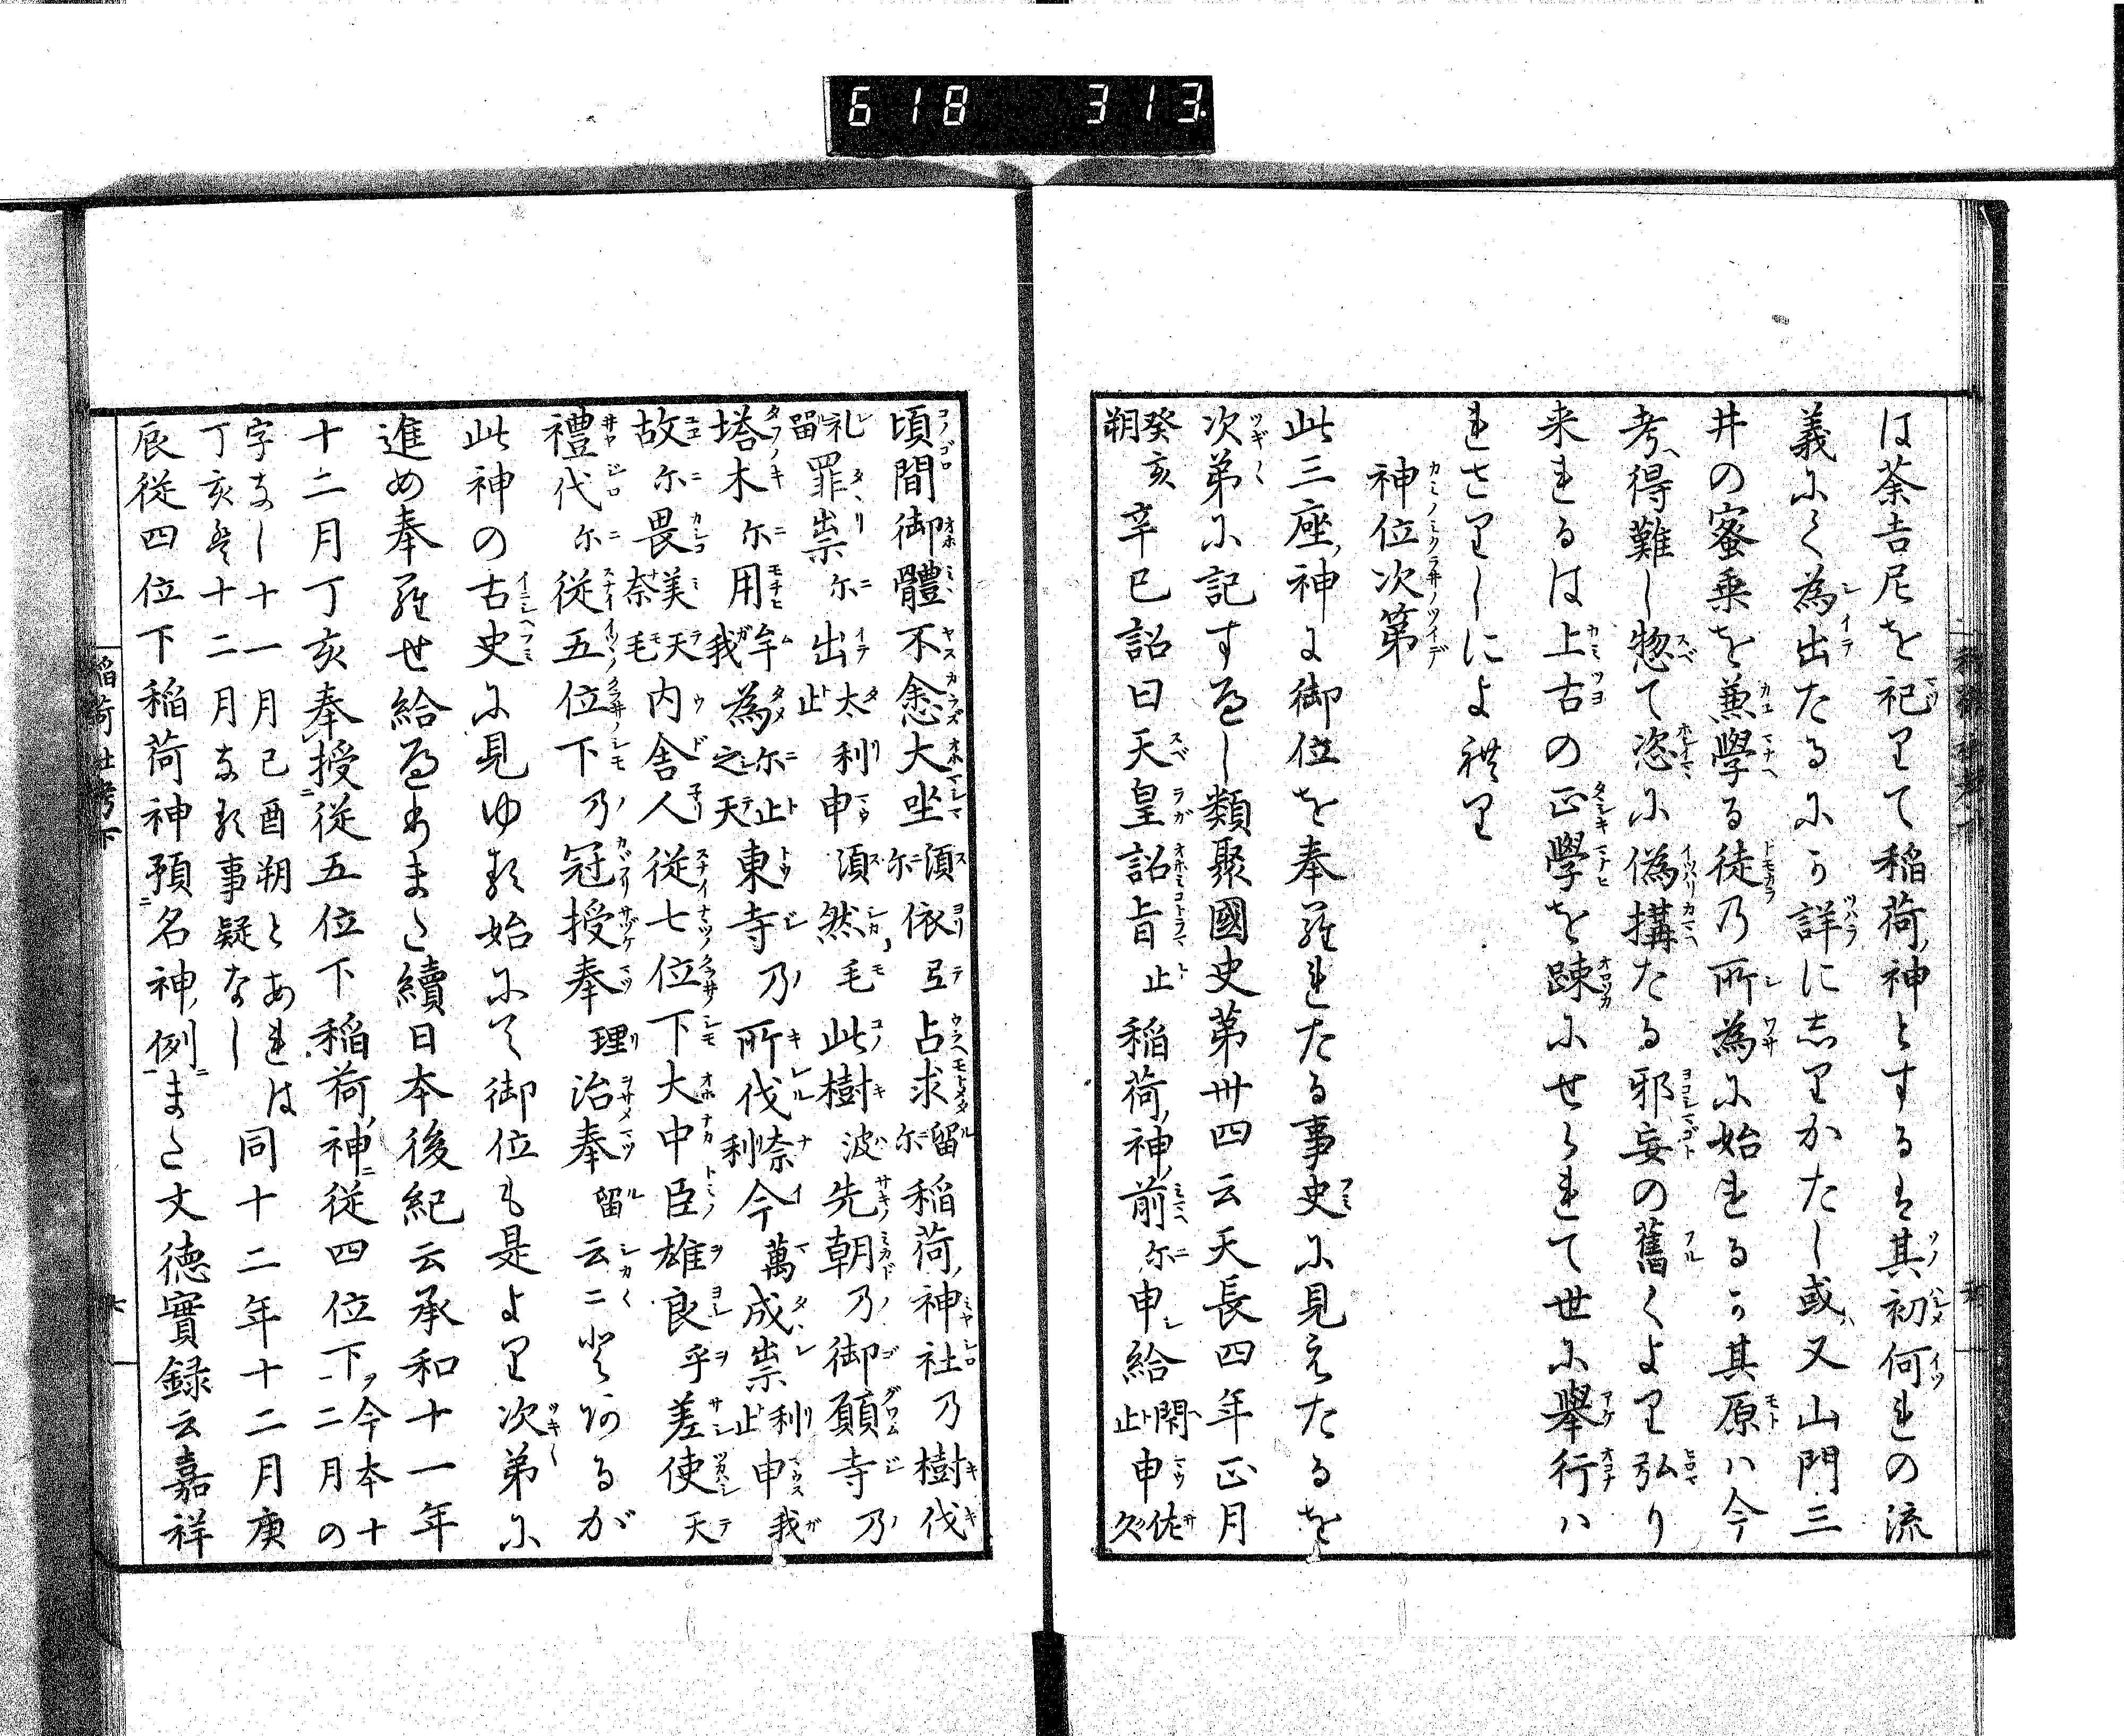 618 313.
は荼吉尼を祀りて稲荷神とするは其初何れの流
義にて為出たるにか詳に志りかたし或又山門三
井の蜜乗を兼學る徒乃所為に始まるか其原ハ今
考得難し惣て恣に偽搆たる邪妄の舊くより弘り
来れるは上古の正學を踈にせられて世に擧行ハ
れさりしによ禮り
神位次第
此三座神に御位を奉羅れたる事史に見えたるを
次第に記すへし類聚國史第卅四云天長四年正月
癸亥朔辛巳詔曰天皇詔旨止稲荷神前尓申給閇止申佐久
頃間御體不悆大坐須尓依弖占求留尓稲荷神社乃樹伐
礼留罪祟尓出太止利申須然毛此樹波先朝乃御願寺乃
塔木尓用牟我為尓止之天東寺乃所伐奈利今萬成祟止利申我
故尓畏美奈天毛内舎人従七位下大中臣雄良乎差使天
禮代尓従五位下乃冠授奉理治奉留云ニとあるが
此神の古史に見ゆる始にて御位も是より次第に
進め奉羅せ給へりまた續日本後紀云承和十一年
十二月丁亥奉授従五位下稲荷神従四位下今本十二月の
字なし十一月己酉朔とあれは丁亥は十二月なる事疑なし同十二年十二月庚
辰従四位下稲荷神預名神例また文徳實録云嘉祥
稲荷社考下